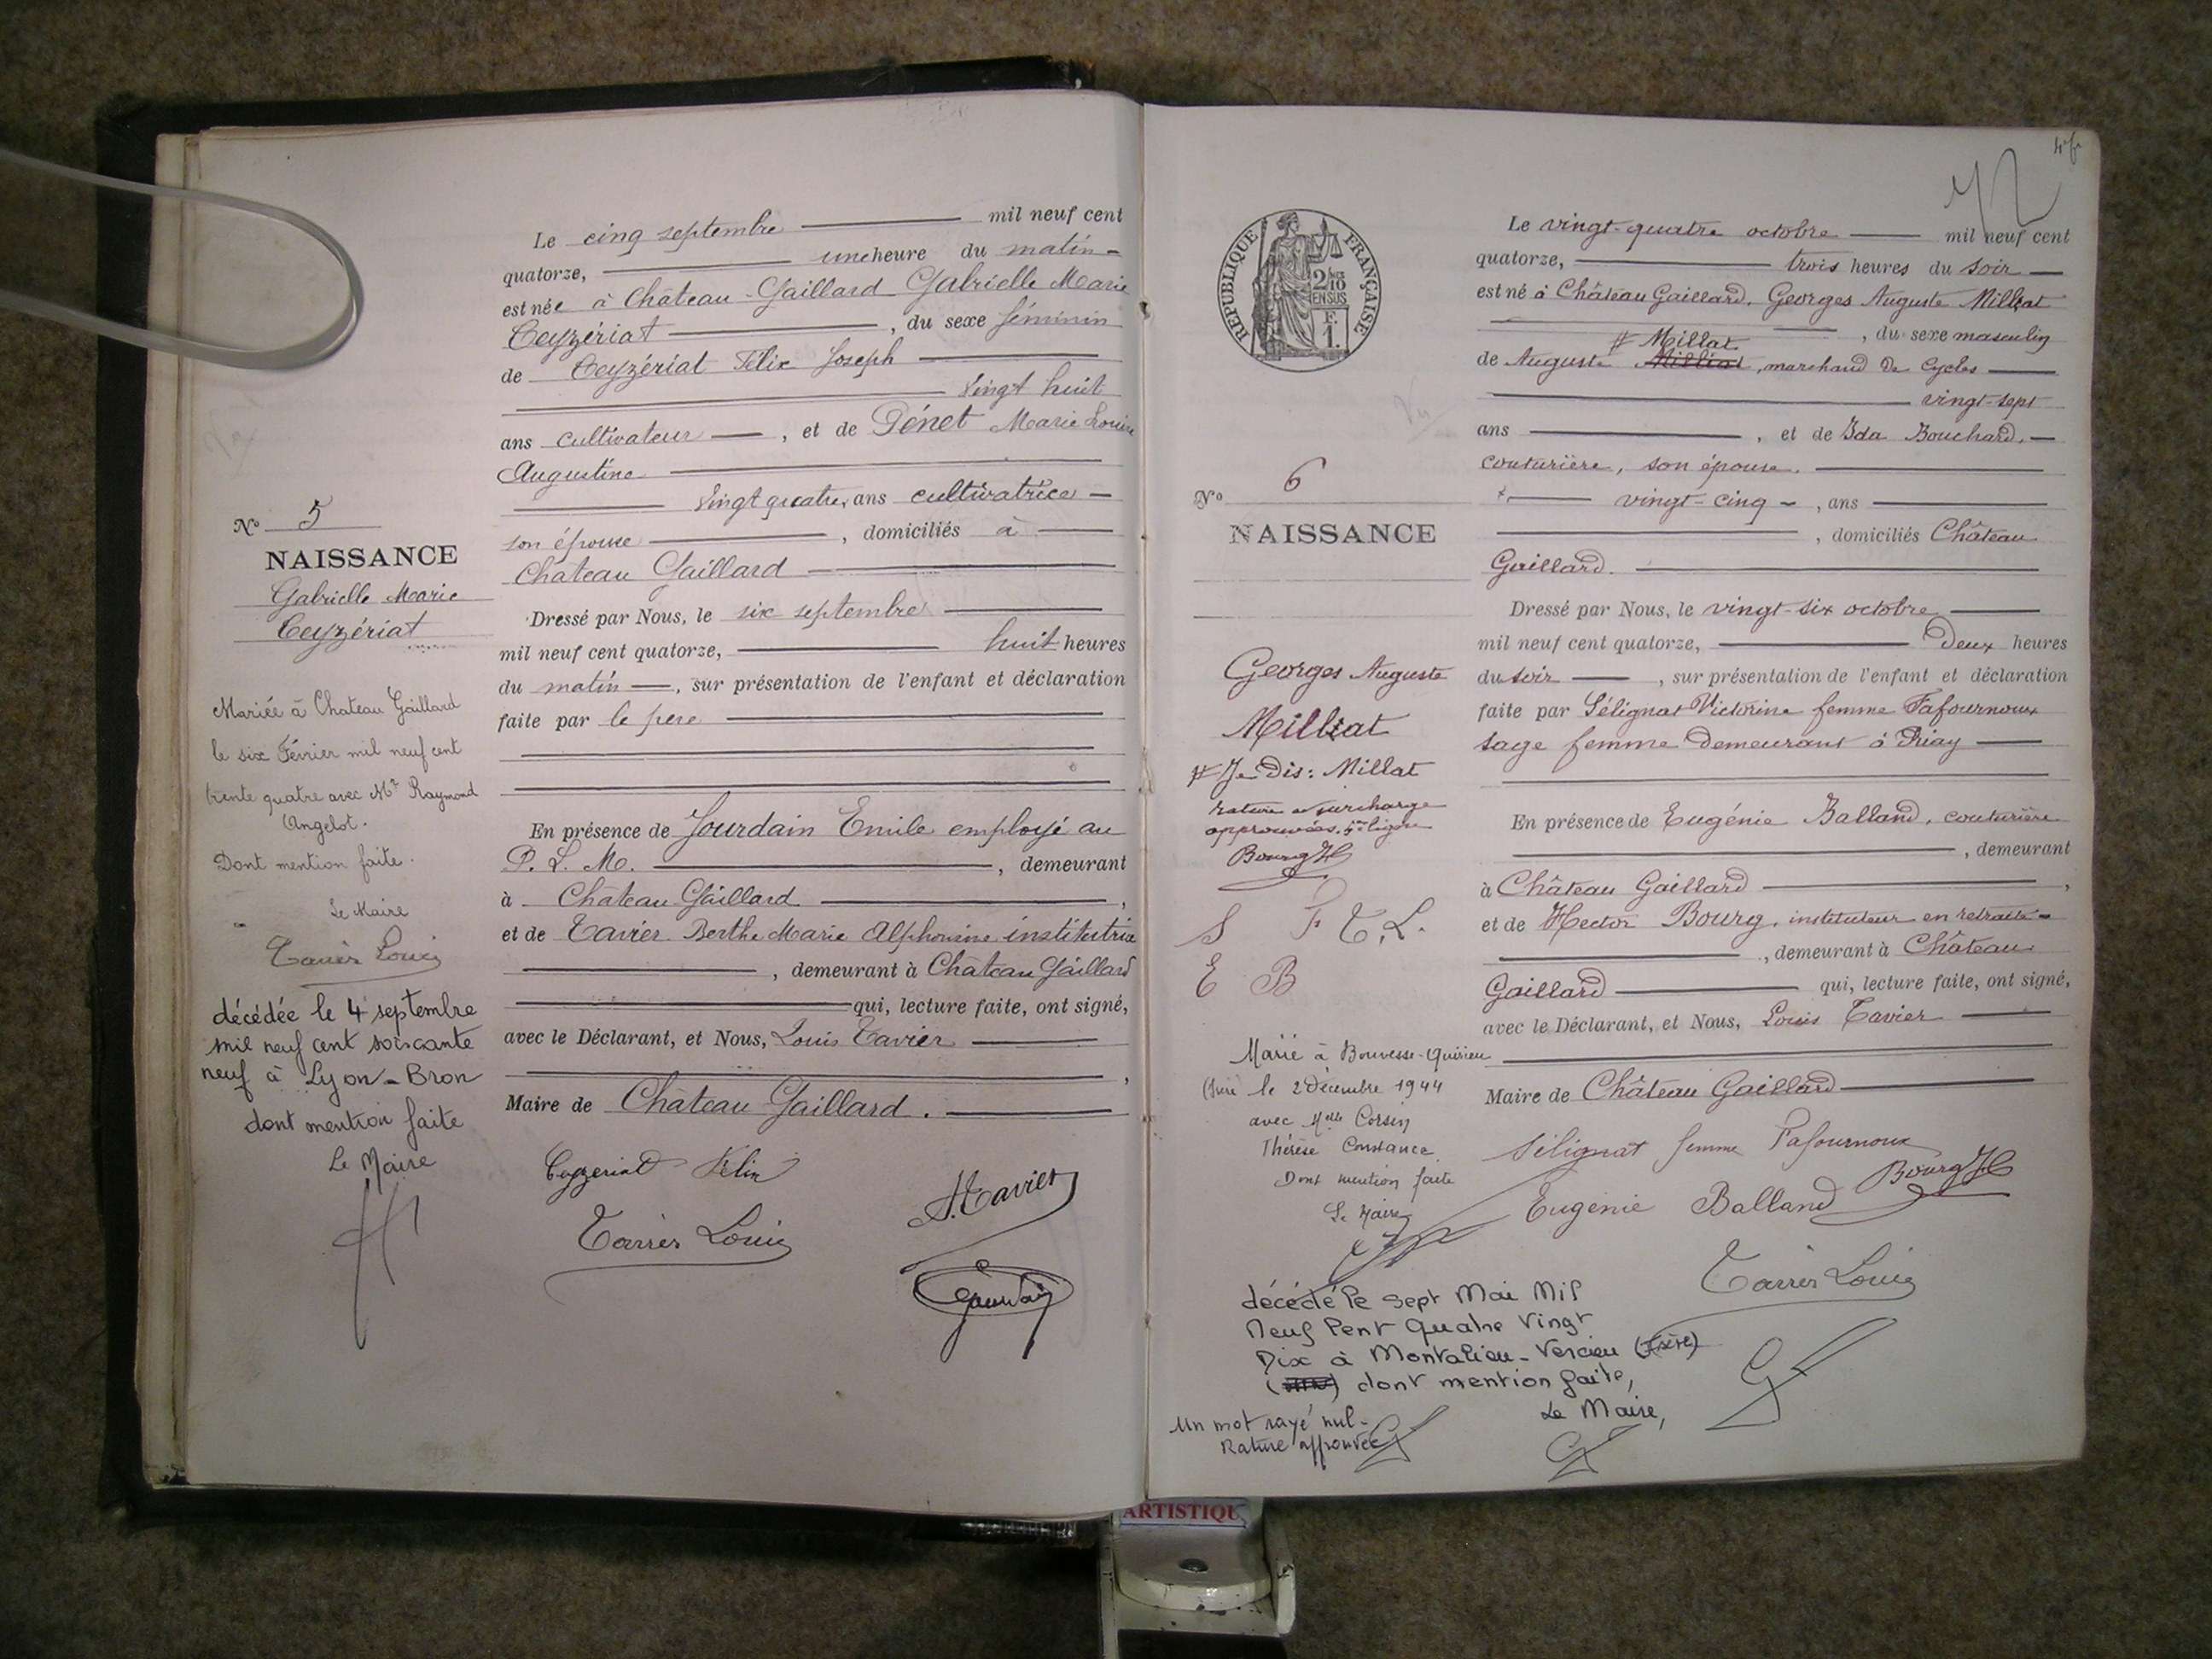 Le cinq septembre mil neuf cent
quatorze, une heure du matin
est née à Château-Gaillard Gabrielle Marie
Ceyzériat, du sexe féminin
de Ceyzériat Félix Joseph
vingt huit
ans cultivateur, et de Pénet Marie Louise
Augustine
vingt quatre ans cultivatrice
son épouse, domiciliés à
Château Gaillard
Dressé par Nous, le six septembre
mil neuf cent quatorze, huit heures
du matin, sur présentation de l'enfant et déclaration
faite par le père
En présence de Jourdain Emile employé au
P. L. M., demeurant
à Château Gaillard,
et de Tavier Berthe Marie Alphonsine institutrice
, demeurant à Château Gaillard
qui, lecture faite, ont signé,
avec le Déclarant, et Nous, Louis Tavier
,
Maire de Château Gaillard.
Ceyzeriat Félix
Tavier Louis
Tavier
Jourdain
No 5
NAISSANCE
Gabrielle Marie
Ceyzériat
Mariée à Chateau Gaillard
le six Février mil neuf cent
trente quatre avec Mr Raymond
Angelot.
Dont mention faite.
Le Maire
Tavier Louis
décédée le 4 septembre
mil neuf cent soixante
neuf à Lyon-Bron
dont mention faite
Le Maire
RÉPUBLIQUE FRANÇAISE
2/10
EN SUS
F.
1.
Le vingt-quatre octobre mil neuf cent
quatorze, trois heures du soir
est né à Château Gaillard, Georges Auguste Millat
, du sexe masculin
# Millat
de Auguste, marchand de Cycles
vingt-sept
ans, et de Ida Bouchard,
couturière, son épouse.
vingt-cinq, ans
, domiciliés Château
Gaillard.
Dressé par Nous, le vingt-six octobre
mil neuf cent quatorze, Deux heures
du soir, sur présentation de l'enfant et déclaration
faite par Sélignat Victorine femme Fafournoux
sage femme demeurant à Priay
En présence de Eugénie Balland, couturière
, demeurant
à Château Gaillard,
et de Hector Bourg, instituteur en retraite
, demeurant à Château
Gaillard qui, lecture faite, ont signé,
avec le Déclarant, et Nous, Louis Tavier
Maire de Château Gaillard
Sélignat femme Fafournoux
Eugénie Balland
Bourg H
Tavier Louis
No 6
NAISSANCE
Georges Auguste
Millat
# Je dis: Millat
rature et surcharge
approuvées
Bourg H
S F T. L.
E B
Marié à Bouvesse-Quirieu
(Isère) le 2 Décembre 1944
avec Melle Corsin
Thérèse Constance
Dont mention faite
Le Maire
décédé le sept Mai Mil
Neuf Cent Quatre Vingt
Dix à Montalieu-Vercieu (Isère)
dont mention faite,
Le Maire,
Un mot rayé nul-
Rature approuvée
ARTISTIQU